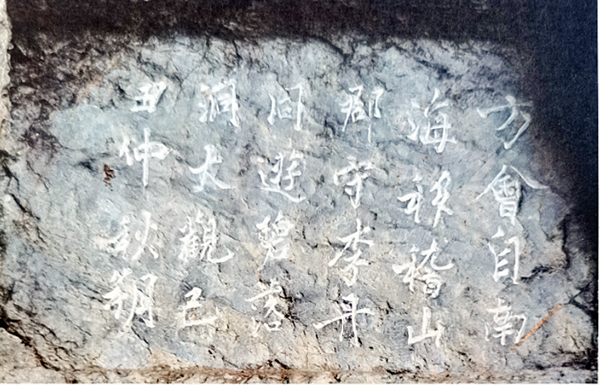 方會自南
海移稽山
郡守李丹
同遊碧落
洞大觀己
丑仲秋朔